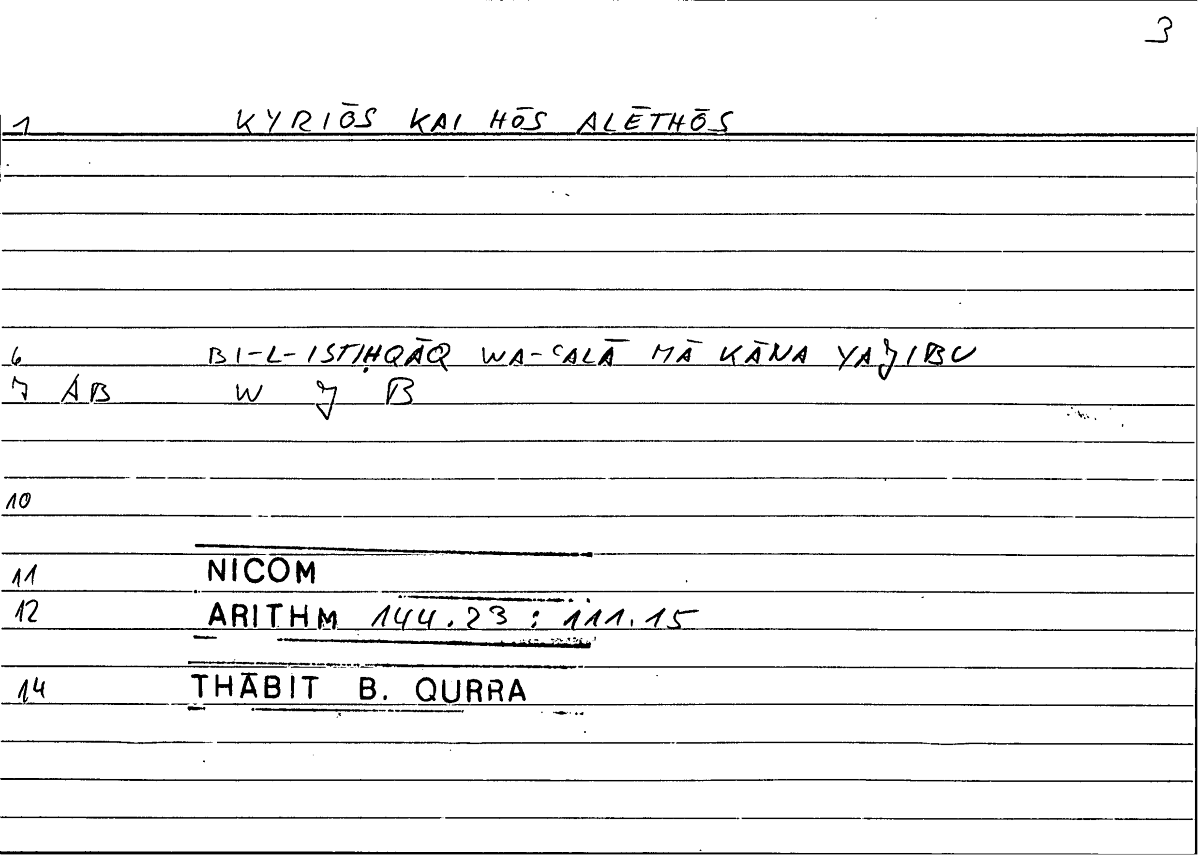 3
1 KYRIŌS KAI HŌS ALĒTHŌS
6 BI-L-ISTIḤQĀQ WA-ʿALĀ MĀ KĀNA YAJIBU
7 AB W J B
10
11 NICOM
12 ARITHM 144.23 : 111.15
14 THĀBIT B. QURRA